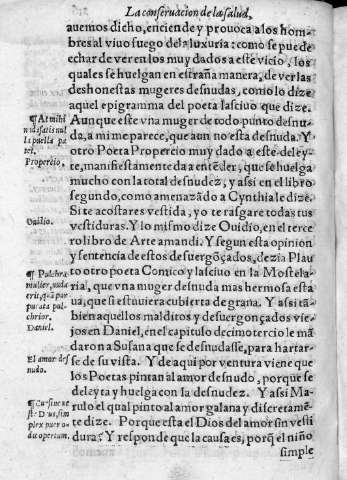 La conseruacion de la salud,
auemos dicho, enciende y prouoca a los hom-
bres al viuo fuego dela luxuria: como se puede
echar de ver en los muy dados a este vicio, los
quales se huelgan en estraña manera, de ver las
deshonestas mugeres desnudas, como lo dize
aquel epigramma del poeta lasciuo que dize.
Aunque este vna muger de todo punto desnu-
da, a mi me parece, que aun no esta desnuda. Y
otro Poeta Propercio muy dado a este deley-
te, manifiestamente da a entẽder, que se huelga
mucho con la total desnudez, y assi en el libro
segundo, como amenazãdo a Cynthia le dize.
Si te acostares vestida, yo te rasgare todas tus
vestiduras. Y lo mismo dize Ouidio, en el terce
ro libro de Arte amandi. Y segun esta opinion
y sentencia de estos desuergõçados, dezia Plau
to otro poeta Comico y lasciuo en la Mostela-
ria, que vna muger desnuda mas hermosa esta
ua, que si estuuiera cubierta de grana. Y assi tã
bien aquellos malditos y desuergonçados vie-
jos en Daniel, en el capitulo decimotercio le mã
daron a Susana que se desnudasse, para hartar-
se de su vista. Y de aqui por ventura viene que
los Poetas pintan al amor desnudo, porque se
deleyta y huelga con la desnudez. Y assi Ma-
rulo el qual pinto al amor galana y discretamẽ-
te dize. Porque esta el Dios del amor sin vesti
dura? Y responde que la causa es, porq̃ el niño
simple
¶ At mihi
nuda satis nul
la puella pa
tet.
Propercio.
Ouidio.
¶ Pulchra
mulier, nuda
erit, quã pur
purata pul-
chrior.
Daniel.
El amor des
nudo.
¶ Cur sine ve
ste Deus, sim
plex puer o-
du opertum.